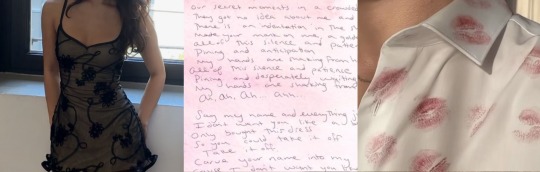 Our secret moments in a crowded
They got no idea about me and
There is an indentation in the s
made your mark on me, a golde
all of this silence and patien
Pining and anticipation
My hands are shaking from h
All of this silence and patience
Pining and desperately waiting
My hands are shaking from
Ah, Ah, Ah... Ahh...
Say my name and everything j
I don't want you like a
Only bought this dress
So you could take it off
Take it off
Carve your name into my
Cause I don't want you li